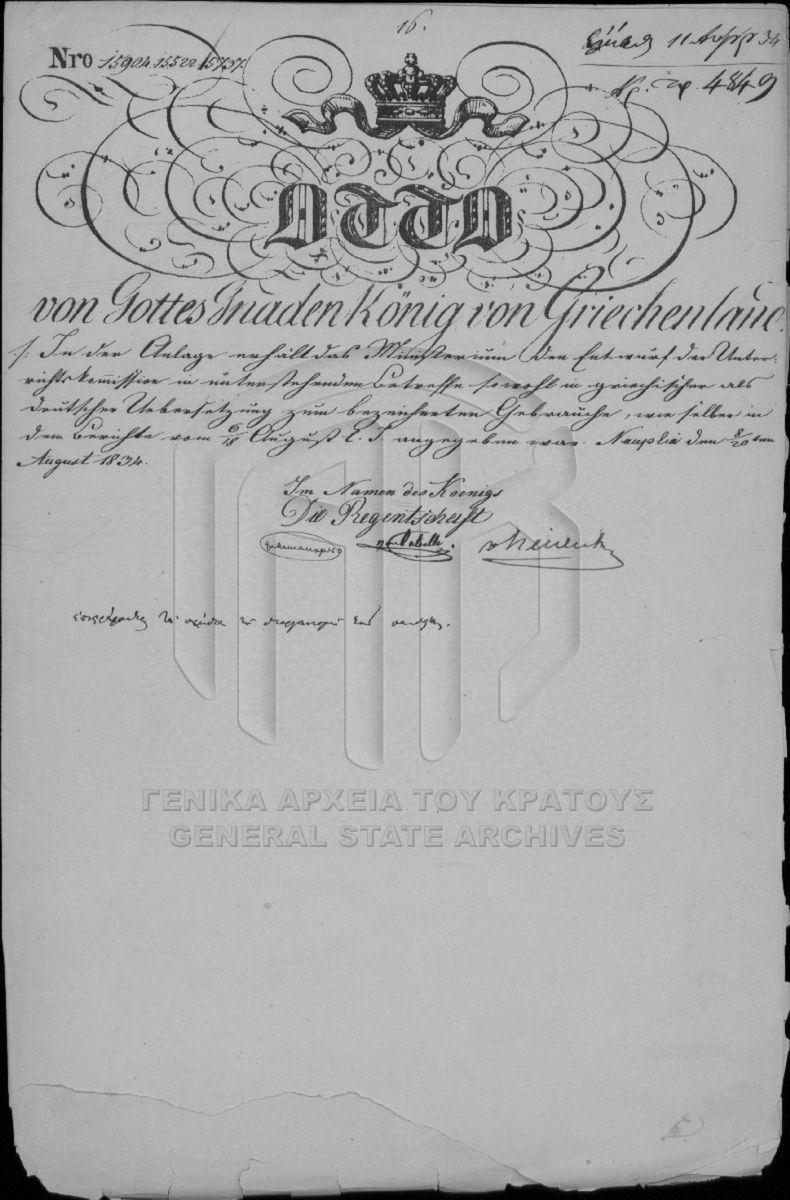 16.
11 Αυγ 34
Nro 15904. 15522. 15737.
4849
OTTO
von Gottes Gnaden König von Griechenland.
In der Anlage erhält das Ministerium den Entwurf der Unter-
richtskommission in untenstehendem Betreffe sowohl in griechischer als
deutscher Uebersetzung zum bezeichneten Gebrauche, wie selber in
dem Berichte vom 6/18 August l. J. angegeben war. Nauplia den 8/20ten
August 1834.
Im Namen des Koenigs
Die Regentschaft
ΓΕΝΙΚΑ ΑΡΧΕΙΑ ΤΟΥ ΚΡΑΤΟΥΣ
GENERAL STATE ARCHIVES